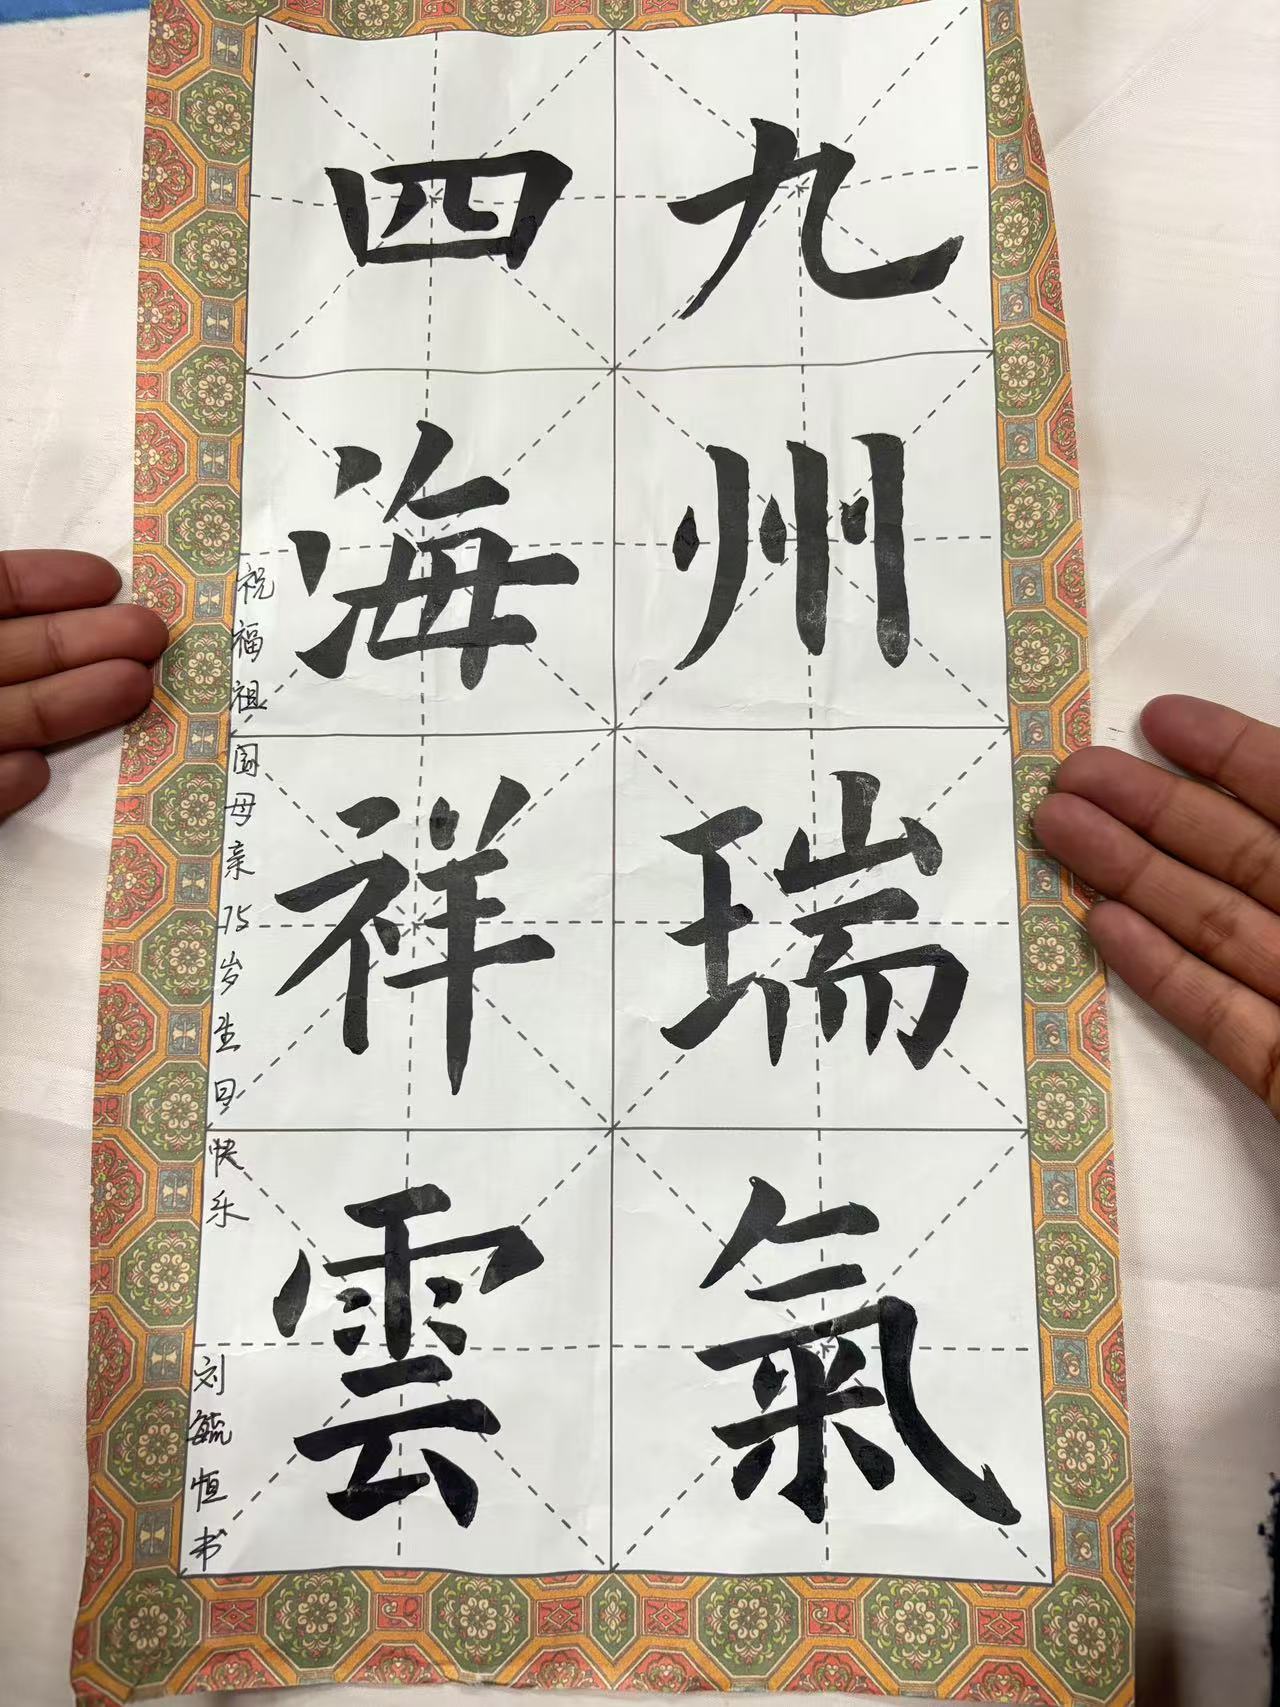 九州瑞氣
四海祥雲
祝福祖国母亲75岁生日快乐
刘毓恒书